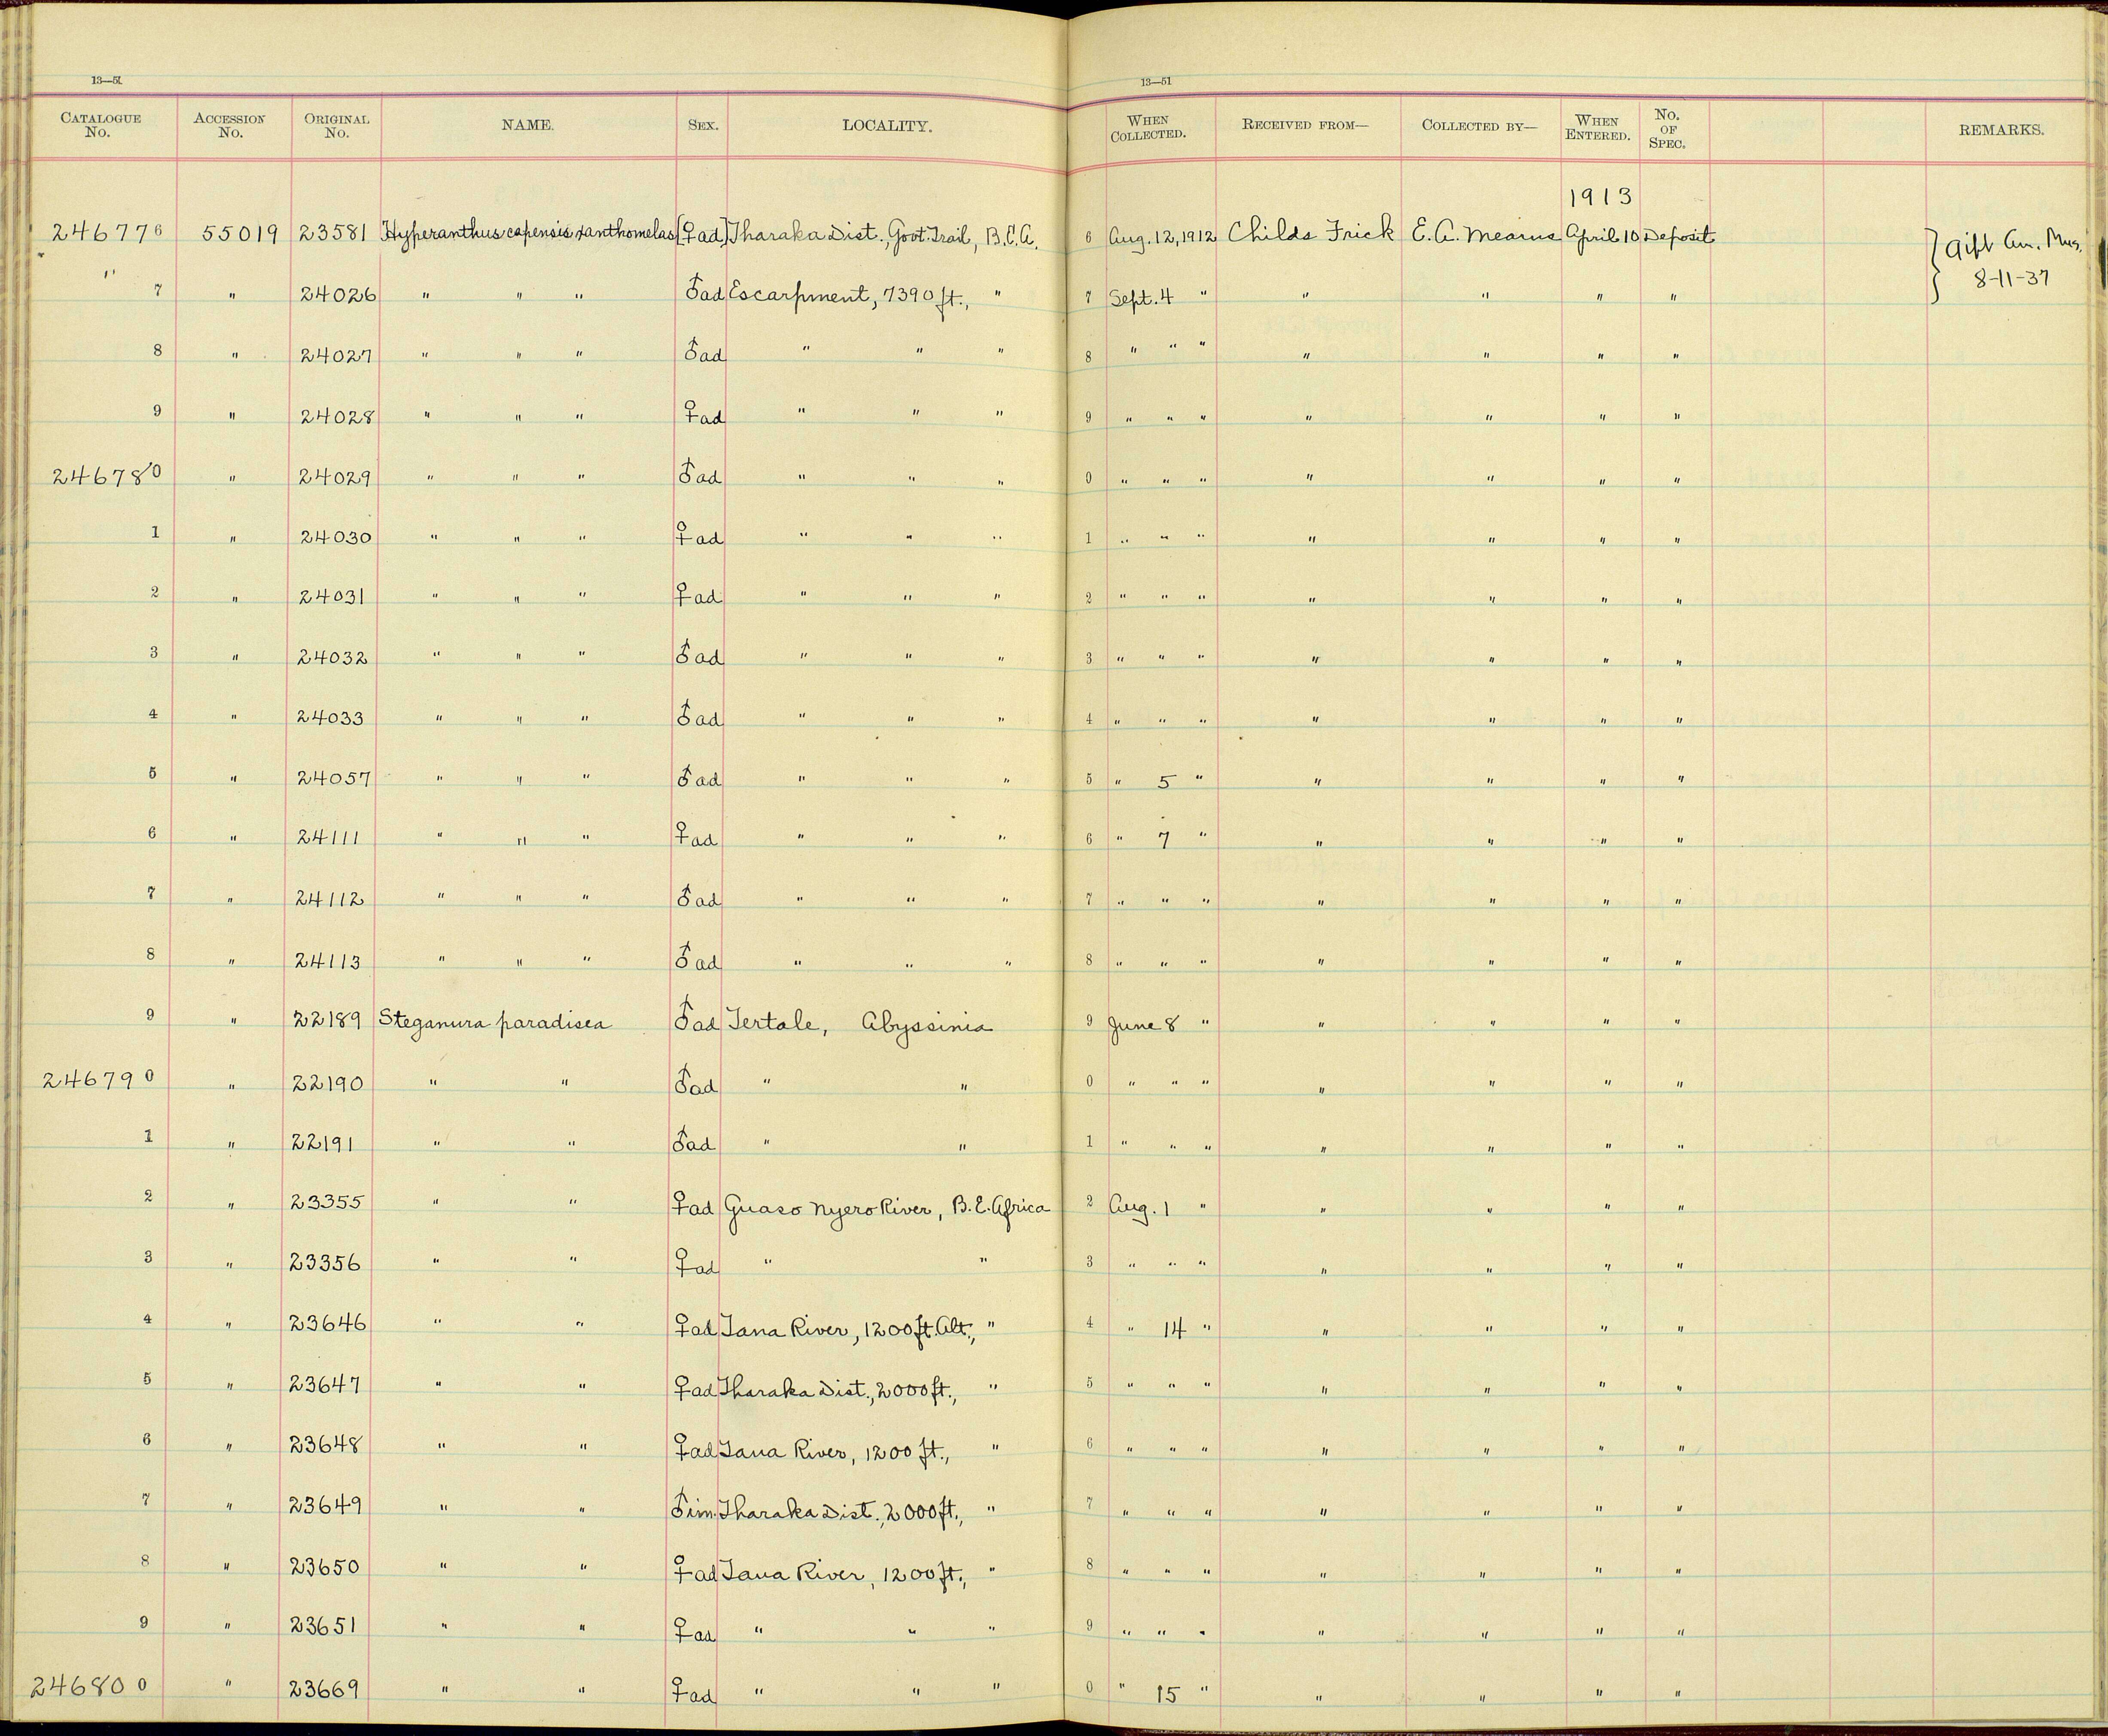 13—51 13—51
CATALOGUE No. ACCESSION No. ORIGINAL No. NAME. SEX. LOCALITY. WHEN COLLECTED. RECEIVED FROM— COLLECTED BY— WHEN ENTERED. No. OF SPEC. REMARKS.
1913
246776 55019 23581 Hyperanthus capensis xanthomelas [♀ad] Tharaka Dist., Govt. Trail, B.E.A. 6 Aug. 12, 1912 Childs Frick E. A. Mearns April 10 Deposit } Gift Am. Mus.
" 7 " 24026 " " " ♂ad Escarpment, 7390 ft., " 7 Sept. 4 " " " " " 8-11-37
8 " 24027 " " " ♂ad " " " 8 " " " " " " "
9 " 24028 " " " ♀ad " " " 9 " " " " " " "
246780 " 24029 " " " ♂ad " " " 0 " " " " " " "
1 " 24030 " " " ♀ad " " " 1 " " " " " " "
2 " 24031 " " " ♀ad " " " 2 " " " " " " "
3 " 24032 " " " ♂ad " " " 3 " " " " " " "
4 " 24033 " " " ♂ad " " " 4 " " " " " " "
5 " 24057 " " " ♂ad " " " 5 " 5 " " " " "
6 " 24111 " " " ♀ad " " " 6 " 7 " " " " "
7 " 24112 " " " ♂ad " " " 7 " " " " " " "
8 " 24113 " " " ♂ad " " " 8 " " " " " " "
9 " 22189 Steganura paradisea ♂ad Tertale, Abyssinia 9 June 8 " " " " "
246790 " 22190 " " ♂ad " " 0 " " " " " " "
1 " 22191 " " ♂ad " " 1 " " " " " " "
2 " 23355 " " ♀ad Guaso Nyero River, B.E. Africa 2 Aug. 1 " " " " "
3 " 23356 " " ♀ad " " 3 " " " " " " "
4 " 23646 " " ♀ad Tana River, 1200 ft. Alt., " 4 " 14 " " " " "
5 " 23647 " " ♀ad Tharaka Dist., 2000 ft., " 5 " " " " " " "
6 " 23648 " " ♀ad Tana River, 1200 ft., " 6 " " " " " " "
7 " 23649 " " ♂im. Tharaka Dist., 2000 ft., " 7 " " " " " " "
8 " 23650 " " ♀ad Tana River, 1200 ft., " 8 " " " " " " "
9 " 23651 " " ♀ad " " " 9 " " " " " " "
246800 " 23669 " " ♀ad " " " 0 " 15 " " " " "